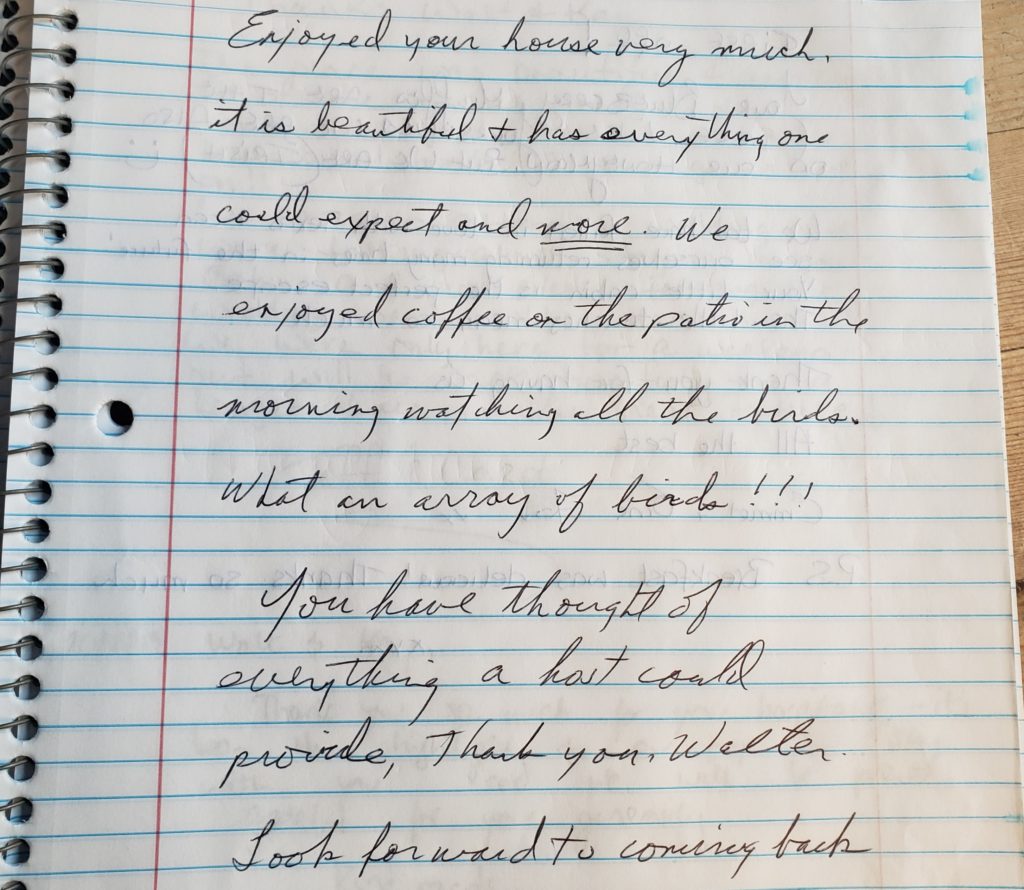 Enjoyed your house very much,
it is beautiful + has everything one
could expect and more. We
enjoyed coffee on the patio in the
morning watching all the birds.
What an array of birds !!!
You have thought of
everything a host could
provide, Thank you, Walter.
Look forward to coming back